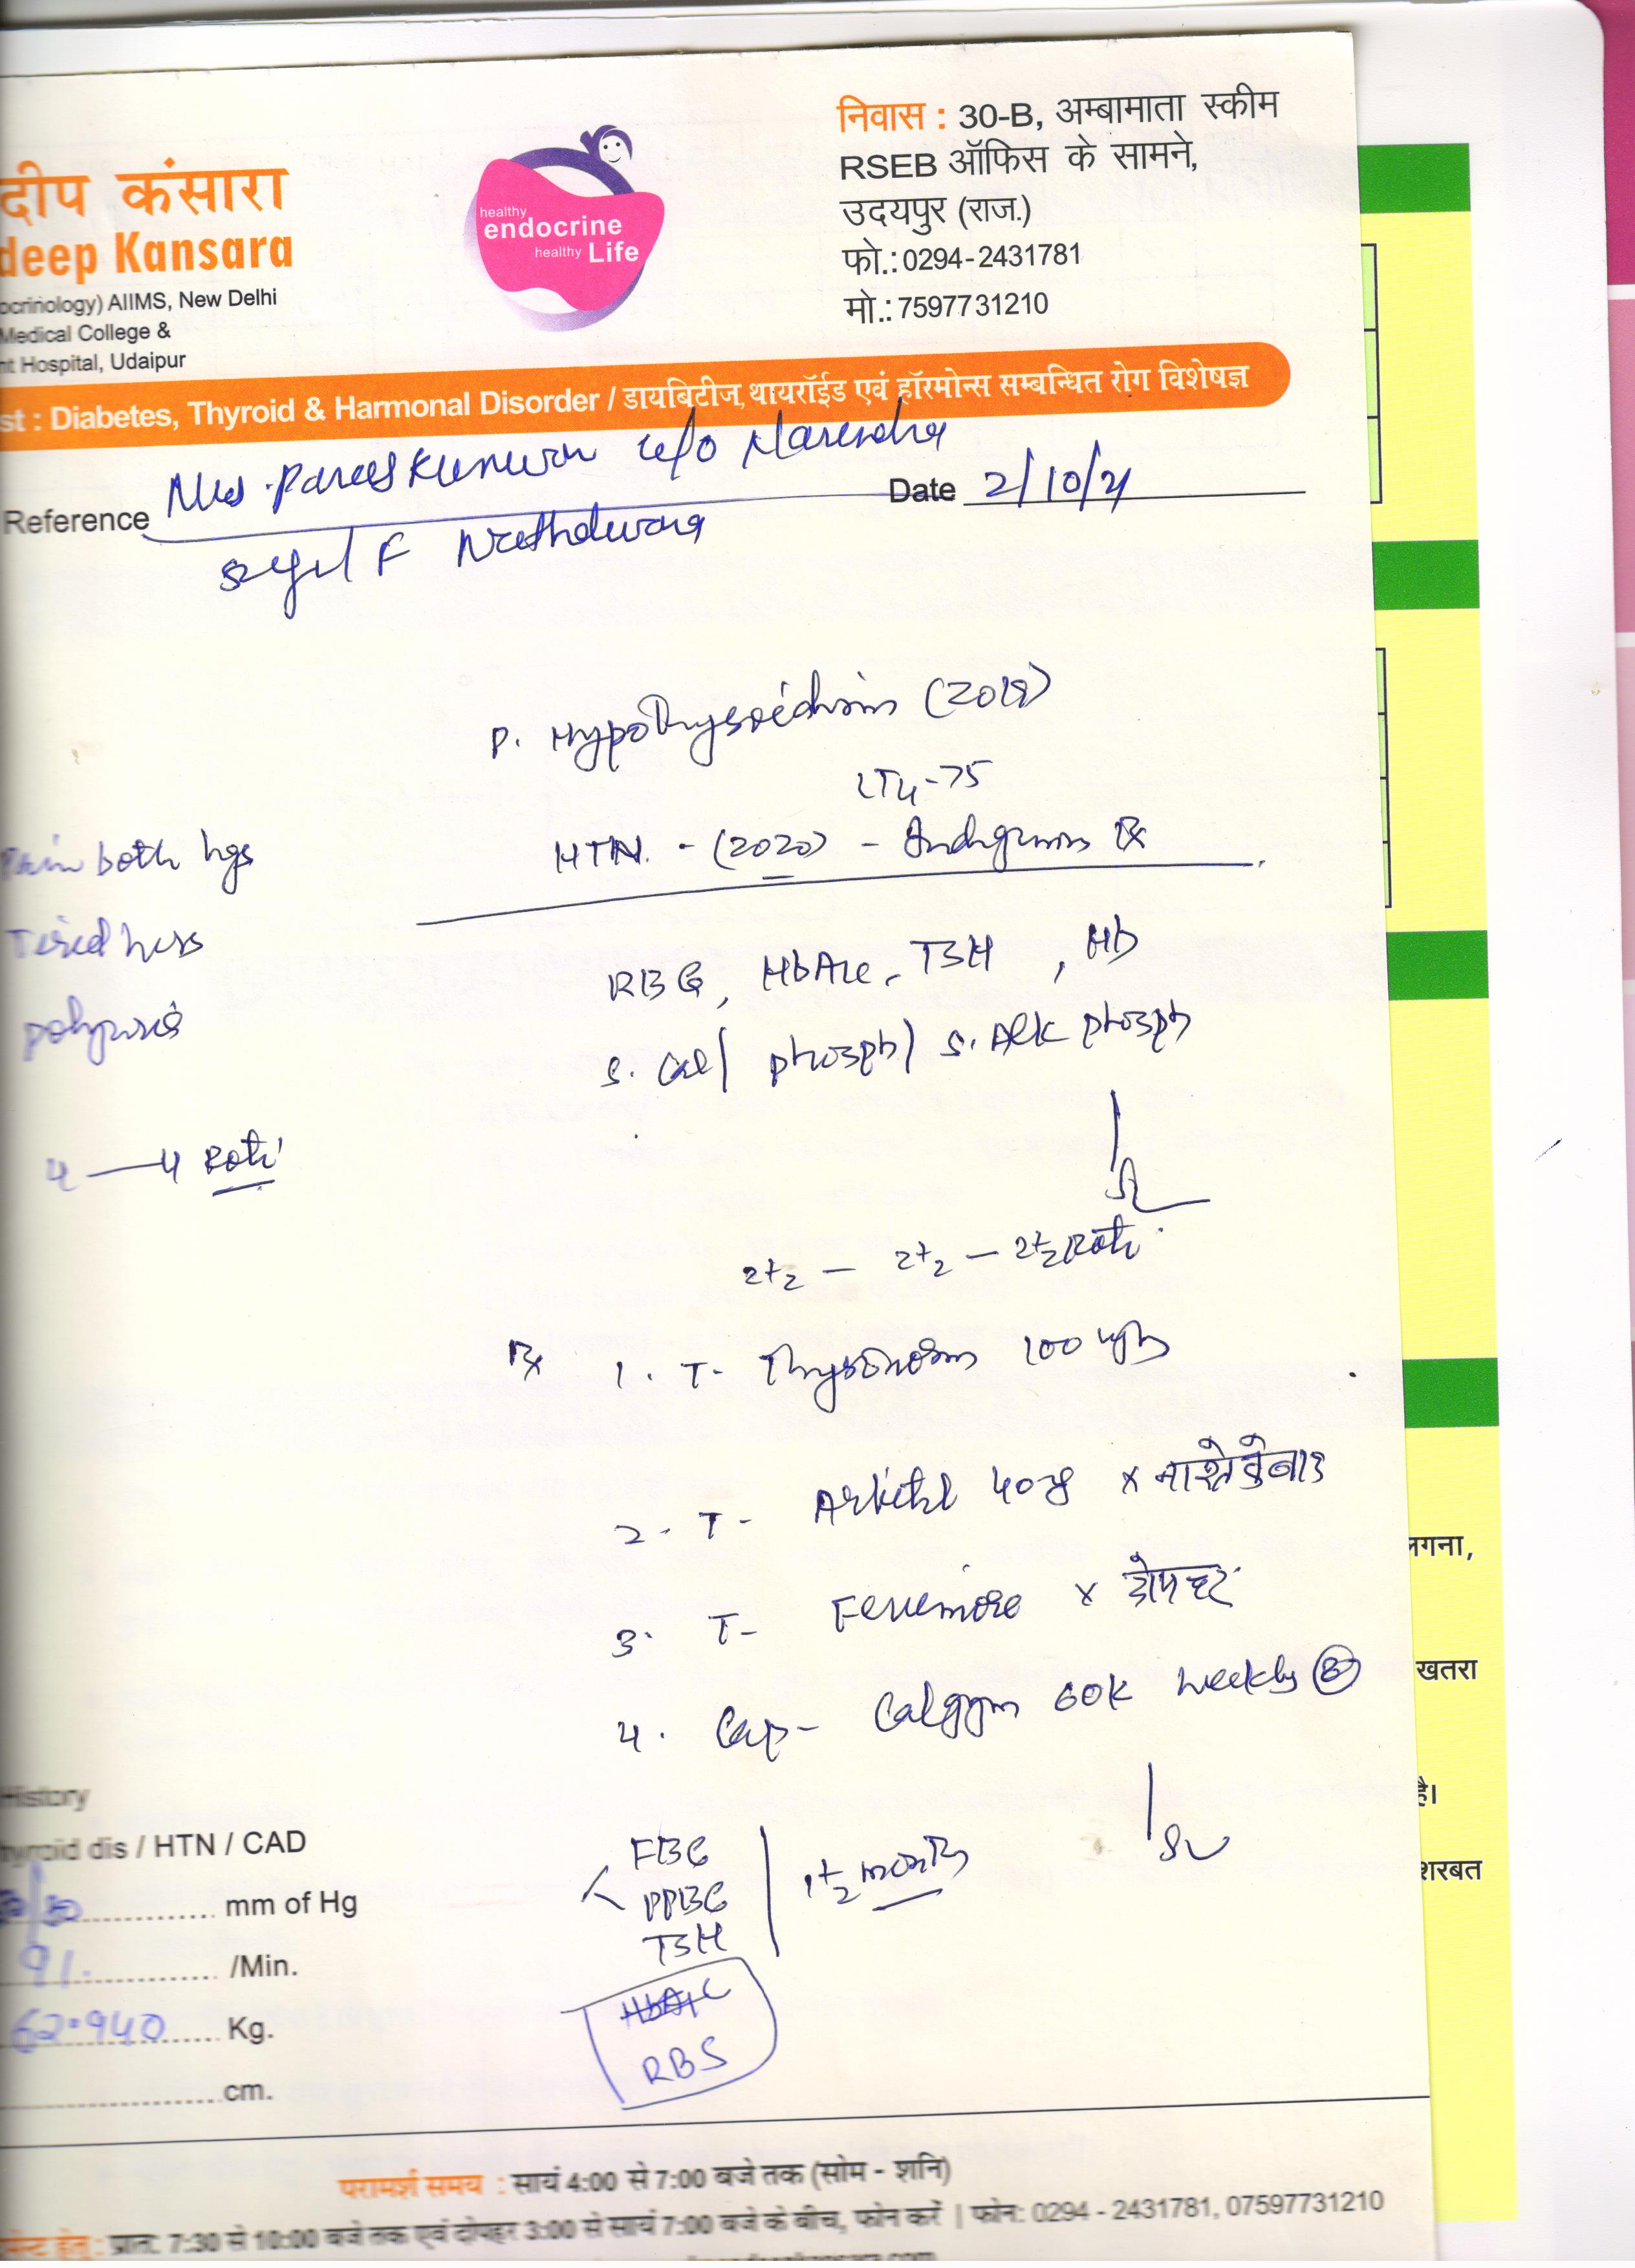 दीप कंसारा
deep Kansara
ocrinology) AIIMS, New Delhi
Medical College &
nt Hospital, Udaipur
healthy
endocrine
healthy Life
निवास : 30-B, अम्बामाता स्कीम
RSEB ऑफिस के सामने,
उदयपुर (राज.)
फो.: 0294-2431781
मो.: 7597731210
st : Diabetes, Thyroid & Harmonal Disorder / डायबिटीज, थायरॉईड एवं हॉरमोन्स सम्बन्धित रोग विशेषज्ञ
Reference Mrs. w/o Narendra
Date 2/10/21
F Nathdwara
P. Hypothyroidism (2018)
LT4-75
HTN. - (2020) - Rx
Pain both legs
Tiredness
RBG, HbA1c, TSH, Hb
S. Cal / phosph / S. Alk phosph
4 — 4 Roti
2½ — 2½ — 2½ Roti
Rx 1. T- Thyronorm 100 ugm
2. T- 40 x नाश्ते के बाद
3. T- x दोपहर
4. Cap- 60K weekly 8
FBG
PPBG
TSH
1½ month
HbA1C
RBS
History
hyroid dis / HTN / CAD
mm of Hg
91. /Min.
62.940 Kg.
cm.
लगना,
खतरा
है।
शरबत
परामर्श समय : सायं 4:00 से 7:00 बजे तक (सोम - शनि)
हेतु : प्रात: 7:30 से 10:00 बजे तक एवं दोपहर 3:00 से सायं 7:00 बजे के बीच, फोन करें | फोन: 0294 - 2431781, 07597731210